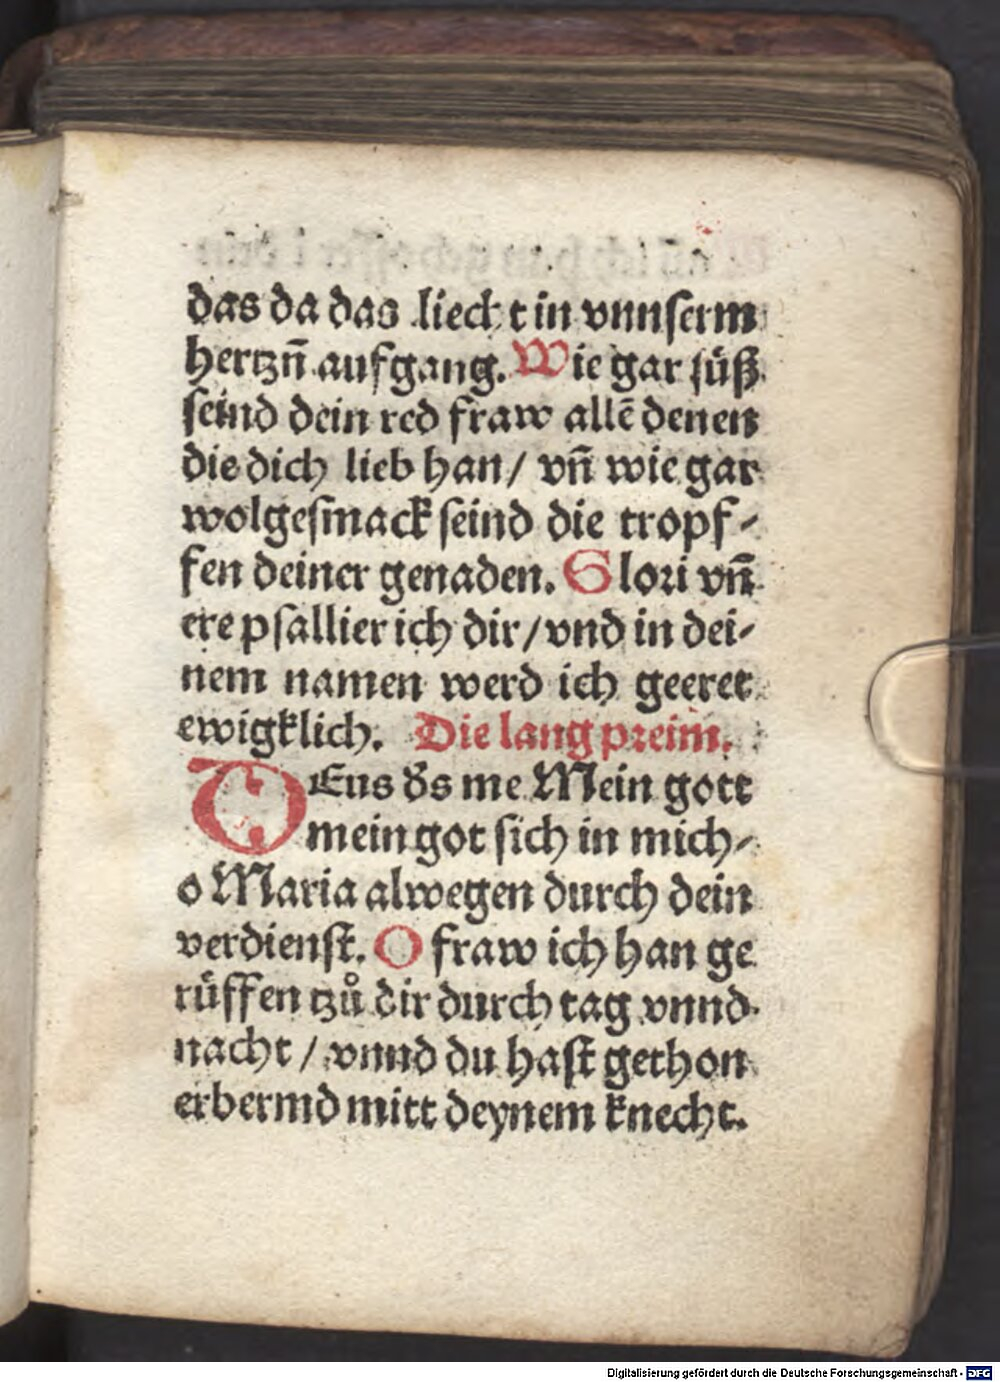 das da das liecht in vnnserm
hertzn̄ aufgang. Wie gar süß
seind dein red fraw allē denen
die dich lieb han/ vn̄ wie gar
wolgesmack seind die tropf-
fen deiner genaden. Glori vn̄
ere psallier ich dir/vnd in dei-
nem namen werd ich geeret
ewigklich. Die lang preim.
DEus ds me Mein gott
mein got sich in mich-
o Maria alwegen durch dein
verdienst. O fraw ich han ge
rüffen tzů dir durch tag vnnd
nacht / vnnd du hast gethon
erbermd mitt deynem knecht.
Digitalisierung gefördert durch die Deutsche Forschungsgemeinschaft - DFG